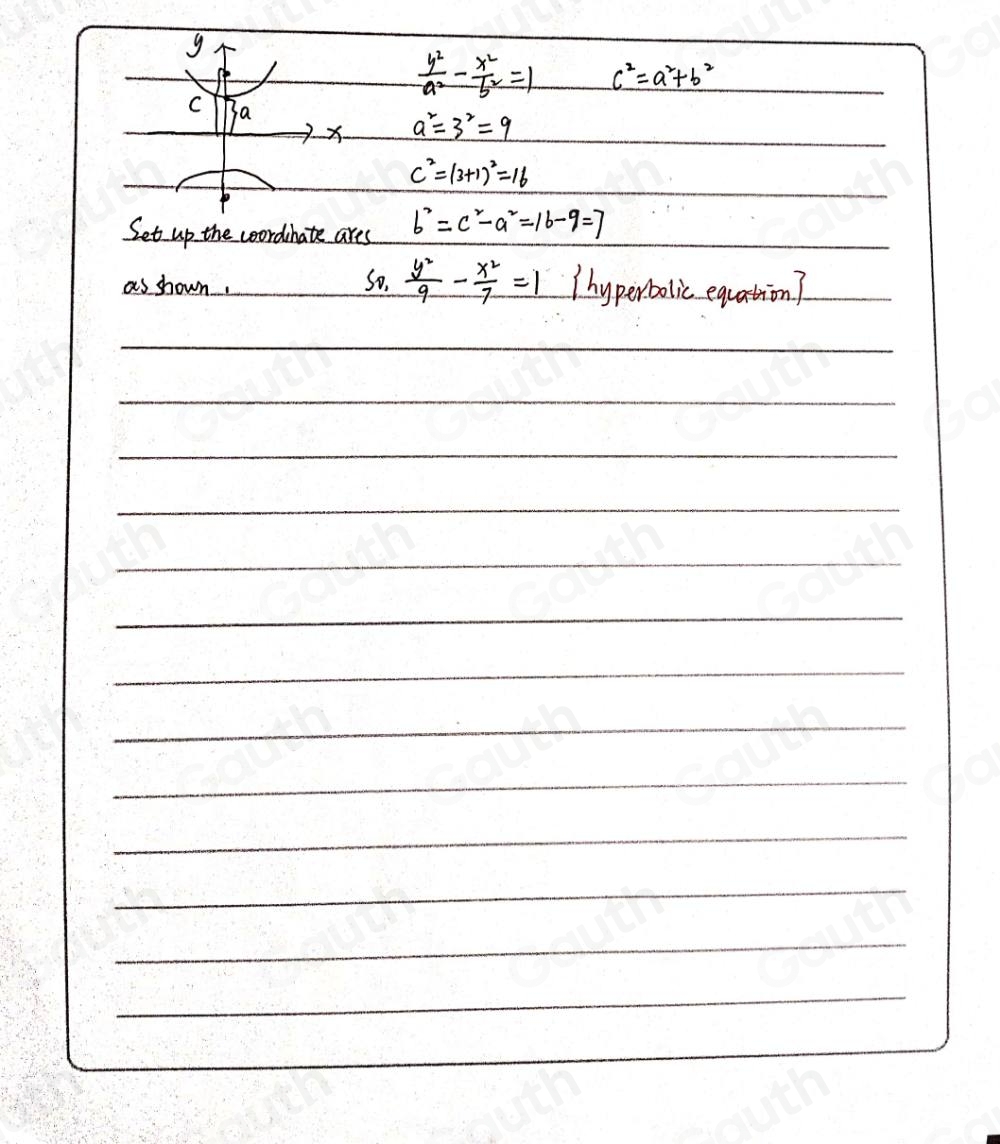 y
y²/a² - x²/b² = 1 c² = a² + b²
c a
x a² = 3² = 9
c² = (3+1)² = 16
Set up the coordinate axes b² = c² - a² = 16 - 9 = 7
as shown. So, y²/9 - x²/7 = 1 {hyperbolic equation}
Gauth